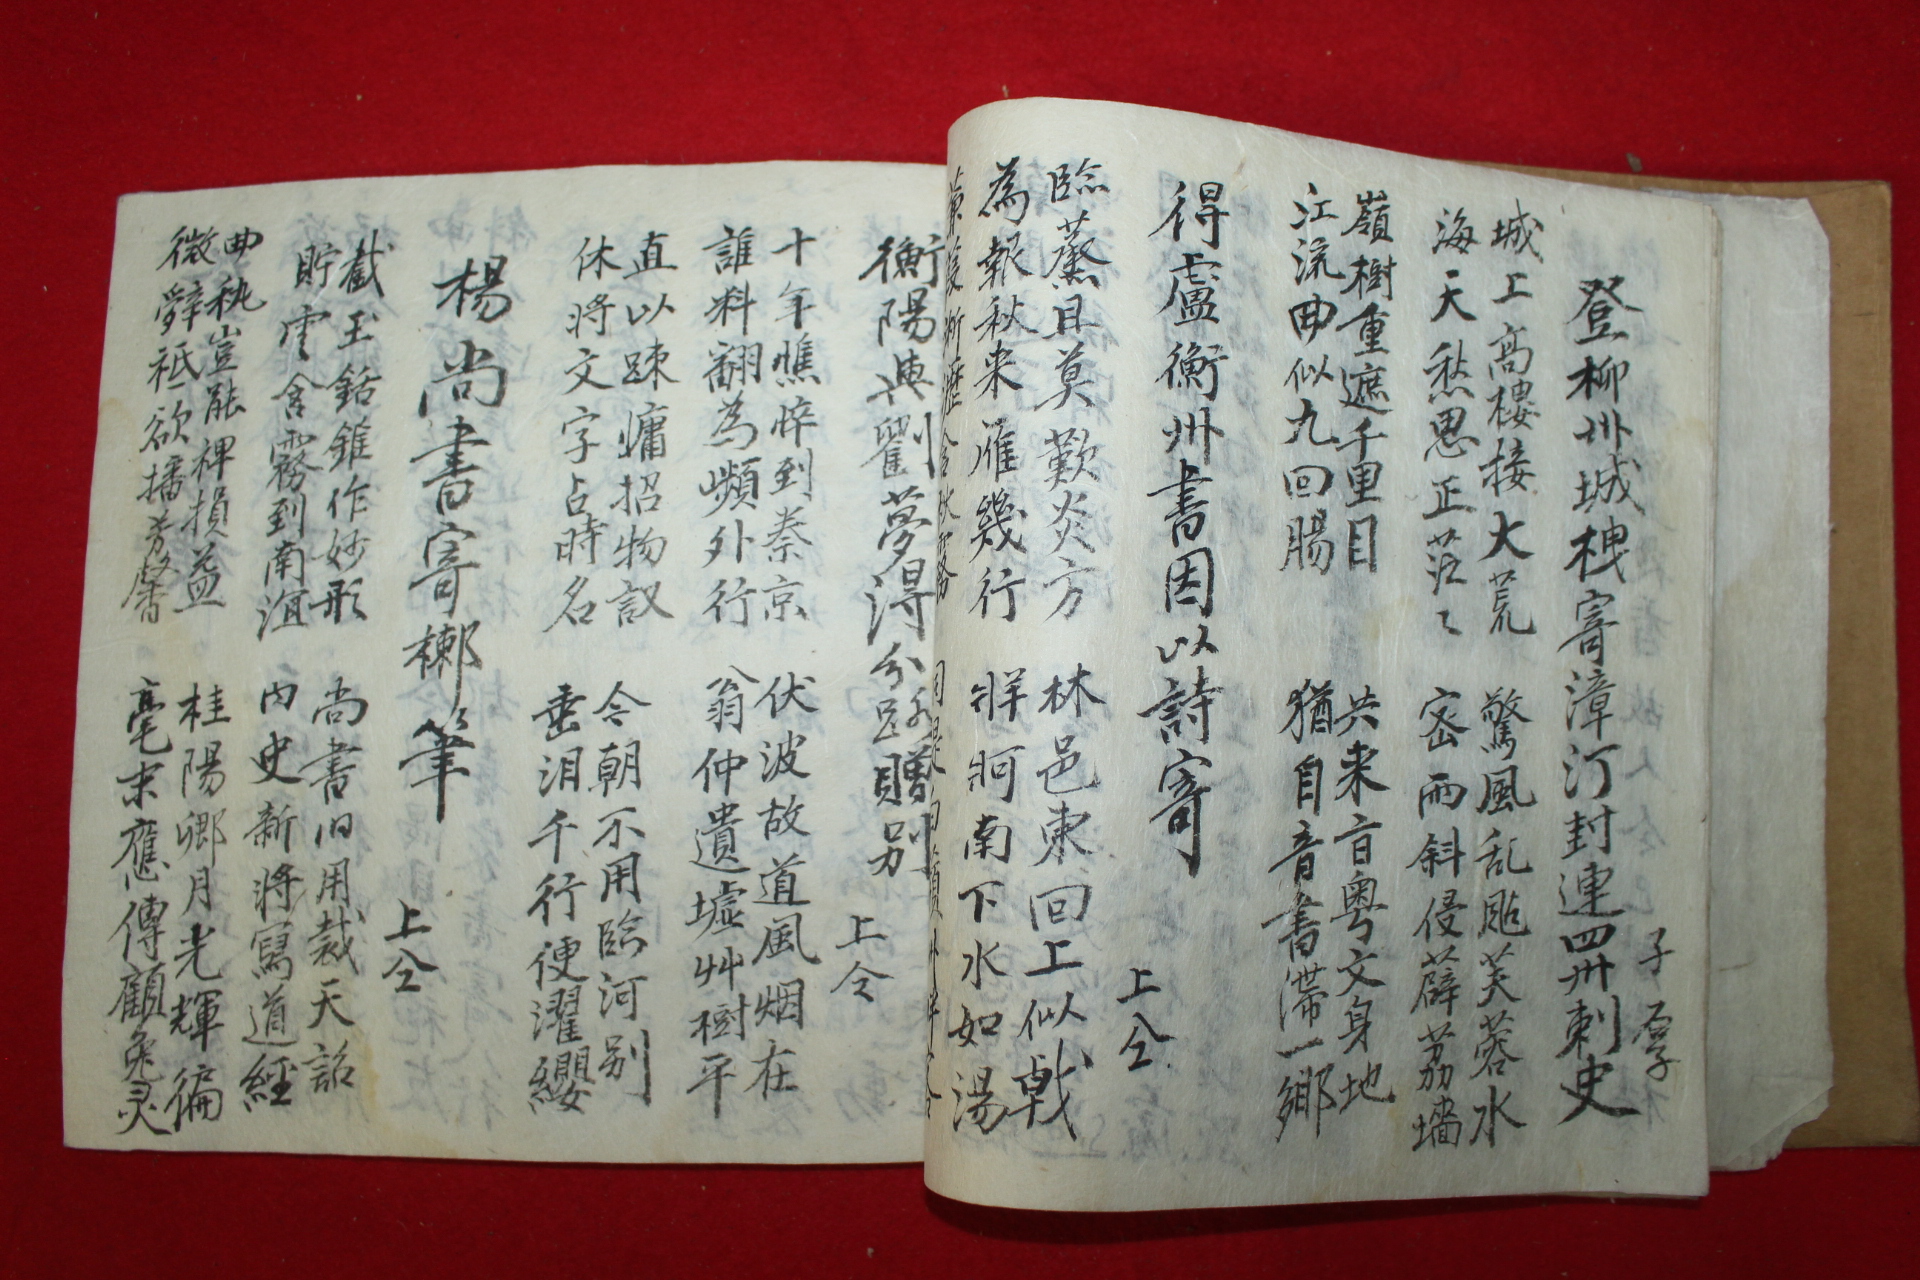 登柳州城樓寄漳汀封連四州刺史
子厚
城上高樓接大荒 驚風乱颭芙蓉水
海天愁思正茫〻 密雨斜侵薜荔墻
嶺樹重遮千里目 共来百粤文身地
江流曲似九回腸 猶自音書滞一鄉
得盧衡州書因以詩寄
上仝
臨蒸且莫歎炎方 林邑東回上似戟
為報秋来雁幾行 牂牁南下水如湯
衡陽與劉夢得分路贈別
上仝
十年憔悴到秦京 伏波故道風烟在
誰料翻為嶺外行 翁仲遺墟艸樹平
直以踈慵招物議 今朝不用臨河別
休将文字占時名 垂泪千行便濯纓
楊尚書寄郴筆
上仝
截玉銛錐作妙形 尚書旧用裁天詔
貯雲含霧到南溟 內史新將寫道經
曲秇豈能裨損益 桂陽卿月光輝徧
微辤祗欲播芳馨 毫末應傳顧兔灵